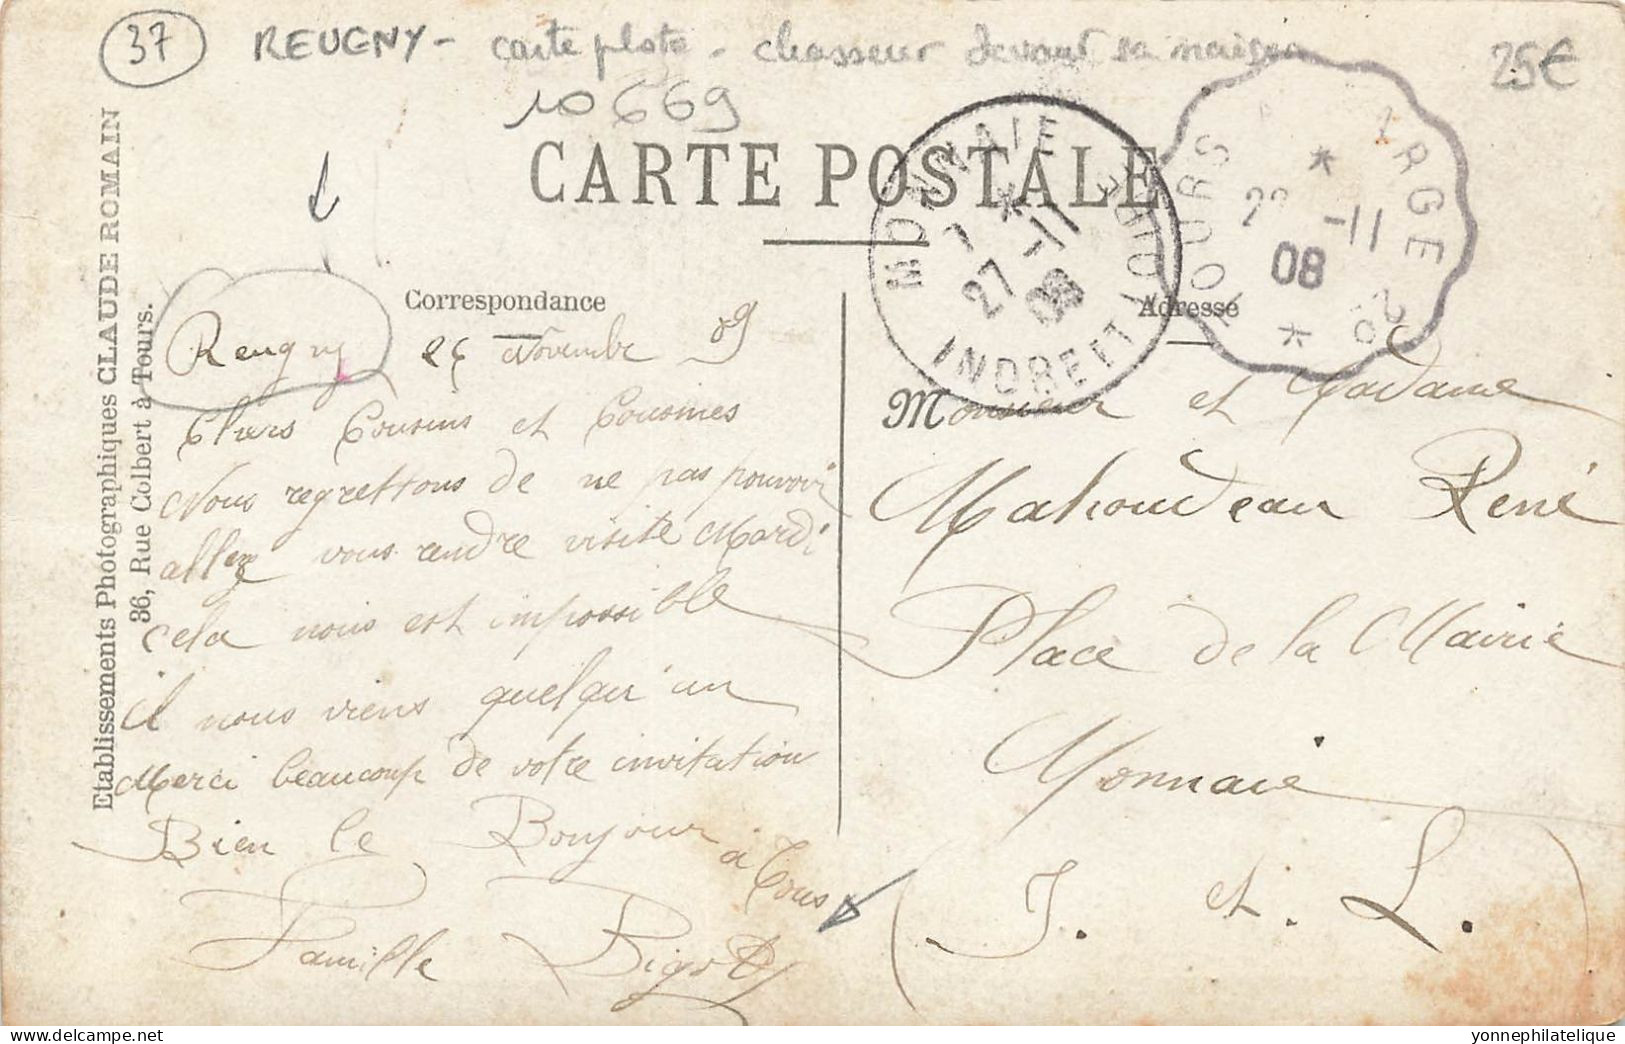 37
REUGNY - carte photo - chasseur devant sa maison
25€
10669
CARTE POSTALE
MONNAIE
27 -11
08
INDRE ET LOIRE
TOURS
-11
08
Etablissements Photographiques CLAUDE ROMAIN
36, Rue Colbert à Tours.
Correspondance
Adresse
Reugny Novembre
Chers Cousins et Cousines
Nous regrettons de ne pas pouvoir
allez vous rendre visite Mardi
cela nous est impossible
il nous viens quelqu'un
Merci beaucoup de votre invitation
Bien le Bonjour
à Tous
Famille Bigot
Monsieur et Madame
Mahoudeau René
Place de la Mairie
Monnaie
(I. et. L.)
yonnephilatelique